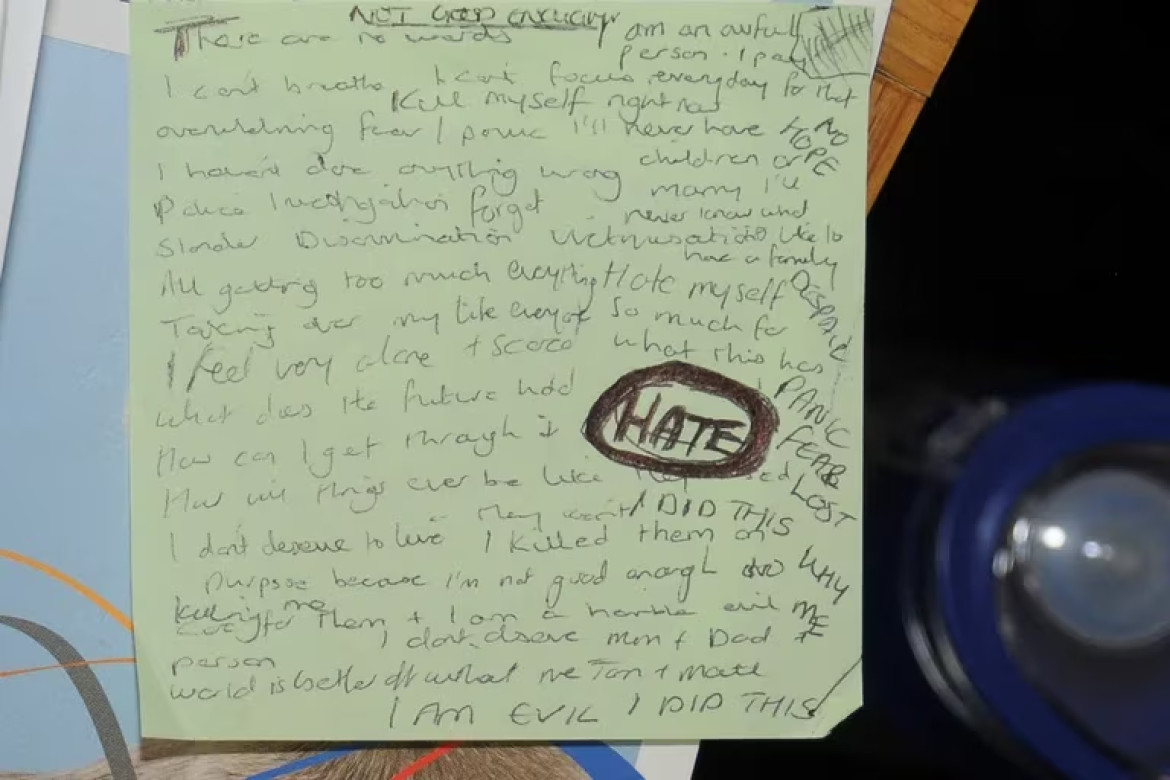 NOT GOOD ENOUGH
There are no words I am an awful
person. I pay
I can't breathe I can't focus everyday for that
Kill myself right now
overwhelming fear / panic I'll never have NO HOPE
children or
I haven't done anything wrong marry I'll
Police Investigation forget never know what
Slander Discrimination Victimisation it's like to
have a family
All getting too much everything Hate myself DESPAIR
Taking over my life everyone so much for
I feel very alone + scared what this has
what does the future hold PANIC
How can I get through it HATE FEAR
How will things ever be like they used LOST
they won't I DID THIS
I don't deserve to live I killed them on
purpose because I'm not good enough WHY
killing me
for them + I am a horrible evil ME
I don't deserve mum + Dad +
person
world is better off without me Tom + Mate
I AM EVIL I DID THIS